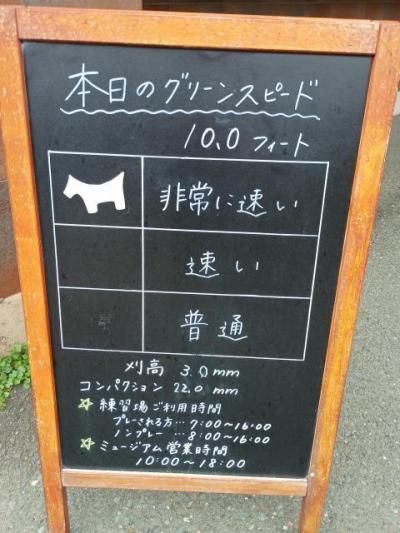 本日のグリーンスピード
10.0 フィート
非常に速い
速い
普通
刈高 3.0mm
コンパクション 22.0 mm
☆ 練習場ご利用時間
プレーされる方…7:00〜16:00
ノンプレー …8:00〜16:00
☆ ミュージアム営業時間
10:00〜18:00